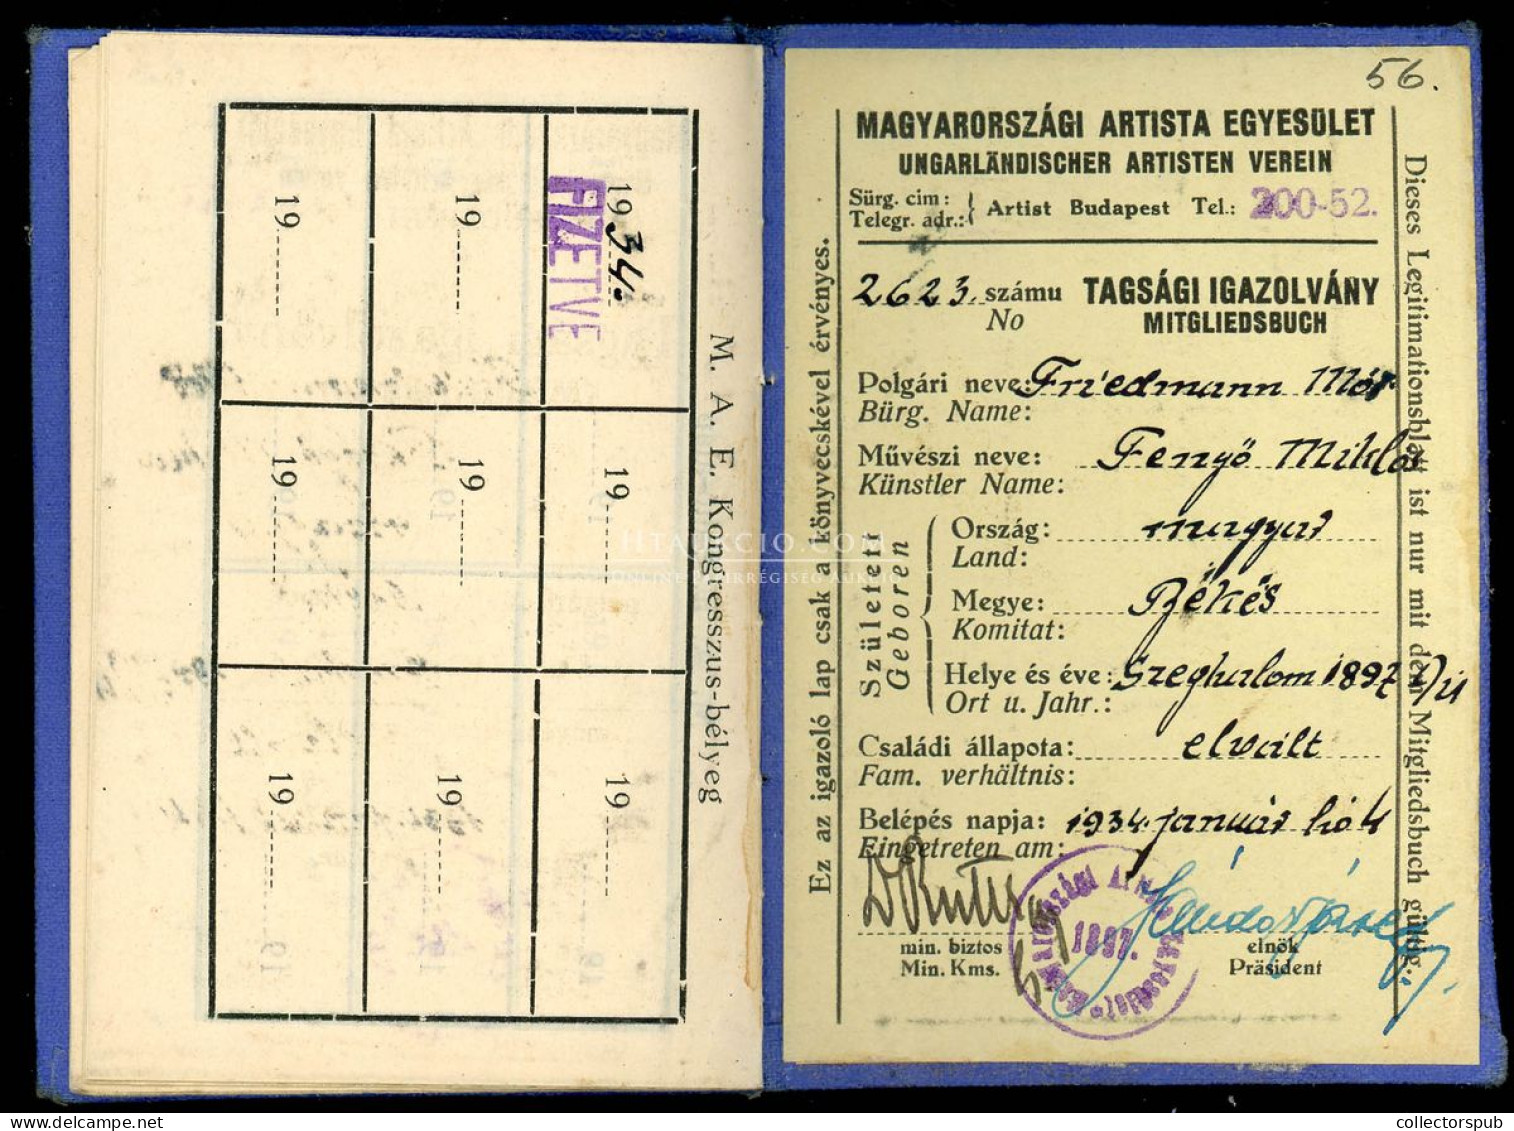 M. A. E. Kongresszus-bélyeg
1934.
FIZETVE
19
19
19
19
19
19
19
19
56.
MAGYARORSZÁGI ARTISTA EGYESÜLET
UNGARLÄNDISCHER ARTISTEN VEREIN
Sürg. cim:
Telegr. adr.:
Artist Budapest Tel.: 200-52.
2623. számu TAGSÁGI IGAZOLVÁNY
No MITGLIEDSBUCH
Polgári neve: Friedmann Mór
Bürg. Name:
Művészi neve: Fenyő Miklós
Künstler Name:
Született
Geboren
Ország: magyar
Land:
Megye: Békés
Komitat:
Helye és éve: Szeghalom 1897
Ort u. Jahr.:
Családi állapota: elvált
Fam. verhältnis:
Belépés napja: 1934. január hó 4
Eingetreten am:
min. biztos
Min. Kms.
1897.
elnök
Präsident
Ez az igazoló lap csak a könyvecskével érvényes.
Dieses Legitimationsblatt ist nur mit dem Mitgliedsbuch gültig.
HTAUKCIO.COM
ONLINE PAPÍRRÉGISÉG AUKCIÓ
collectorspub